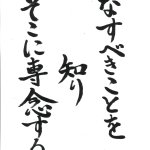 なすべきことを
知り
そこに専念する